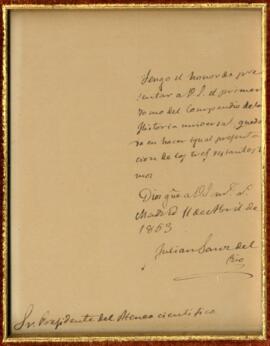 Tengo el honor de pre
sentar a V.S. el primer
tomo del Compendio de la
Historia universal, queda
en hacer igual presenta
cion de los tres restantes to
mos
Dios gũe a V.S. m.s a.s
Madrid 11 de Abril de
1853
Julian Sanz del
Rio
Sr. Presidente del Ateneo cientifico